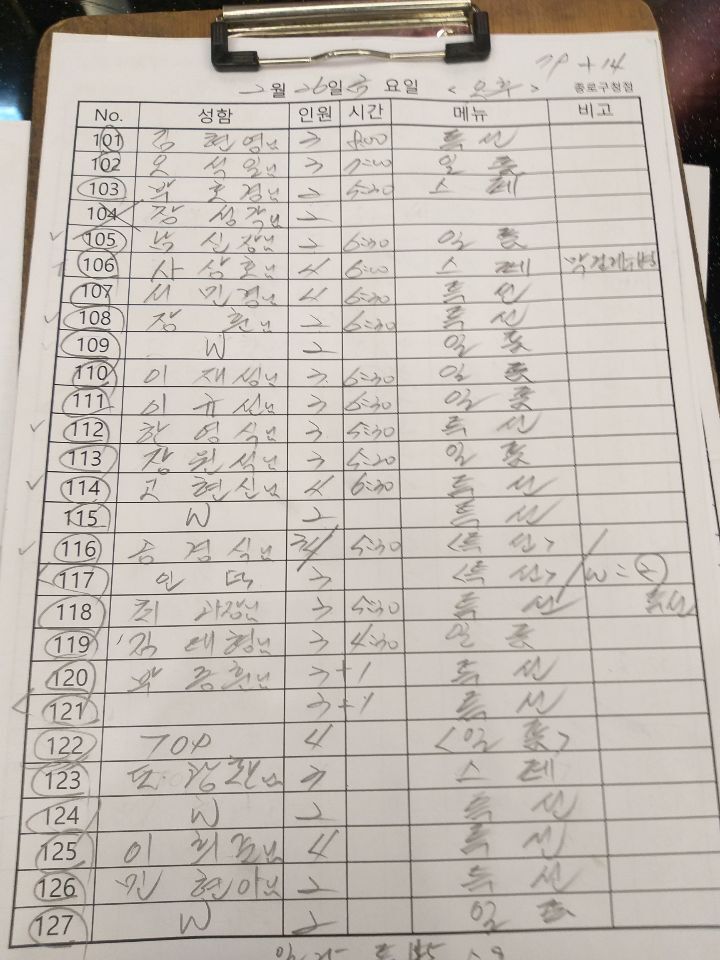 7P + 14
2월 26일 금 요일 < 오후 > 종로구청점
No. 성함 인원 시간 메뉴 비고
101 김 현영님 3 8:00 특 선
102 오 석일님 3 7:00 일 품
103 박 호경님 2 5:30 스 페
104 장 성작님 2
105 박 신장님 2 6:30 일 품
106 사 삼호님 4 6:00 스 페
107 서 민경님 4 6:30 특 선
108 장 훈님 2 6:30 특 선
109 W 2 일 품
110 이 재성님 3 6:30 일 품
111 이 규선님 3 6:30 일 품
112 한 영식님 3 5:30 특 선
113 장 원석님 3 5:20 일 품
114 고 현신님 4 6:30 특 선
115 W 2 특 선
116 경식님 5:30 <특 선>
117 인 덕 3 <특 선> W = 2
118 최 과장님 3 5:30 특 선 특선
119 김 대형님 3 4:30 일 품
120 박 종환님 3 +1 특 선
121 3 +1 특 선
122 TOP 4 <일 품>
123 3 스 페
124 W 2 특 선
125 이 희준님 4 특 선
126 민 현아님 2 특 선
127 W 2 일 품